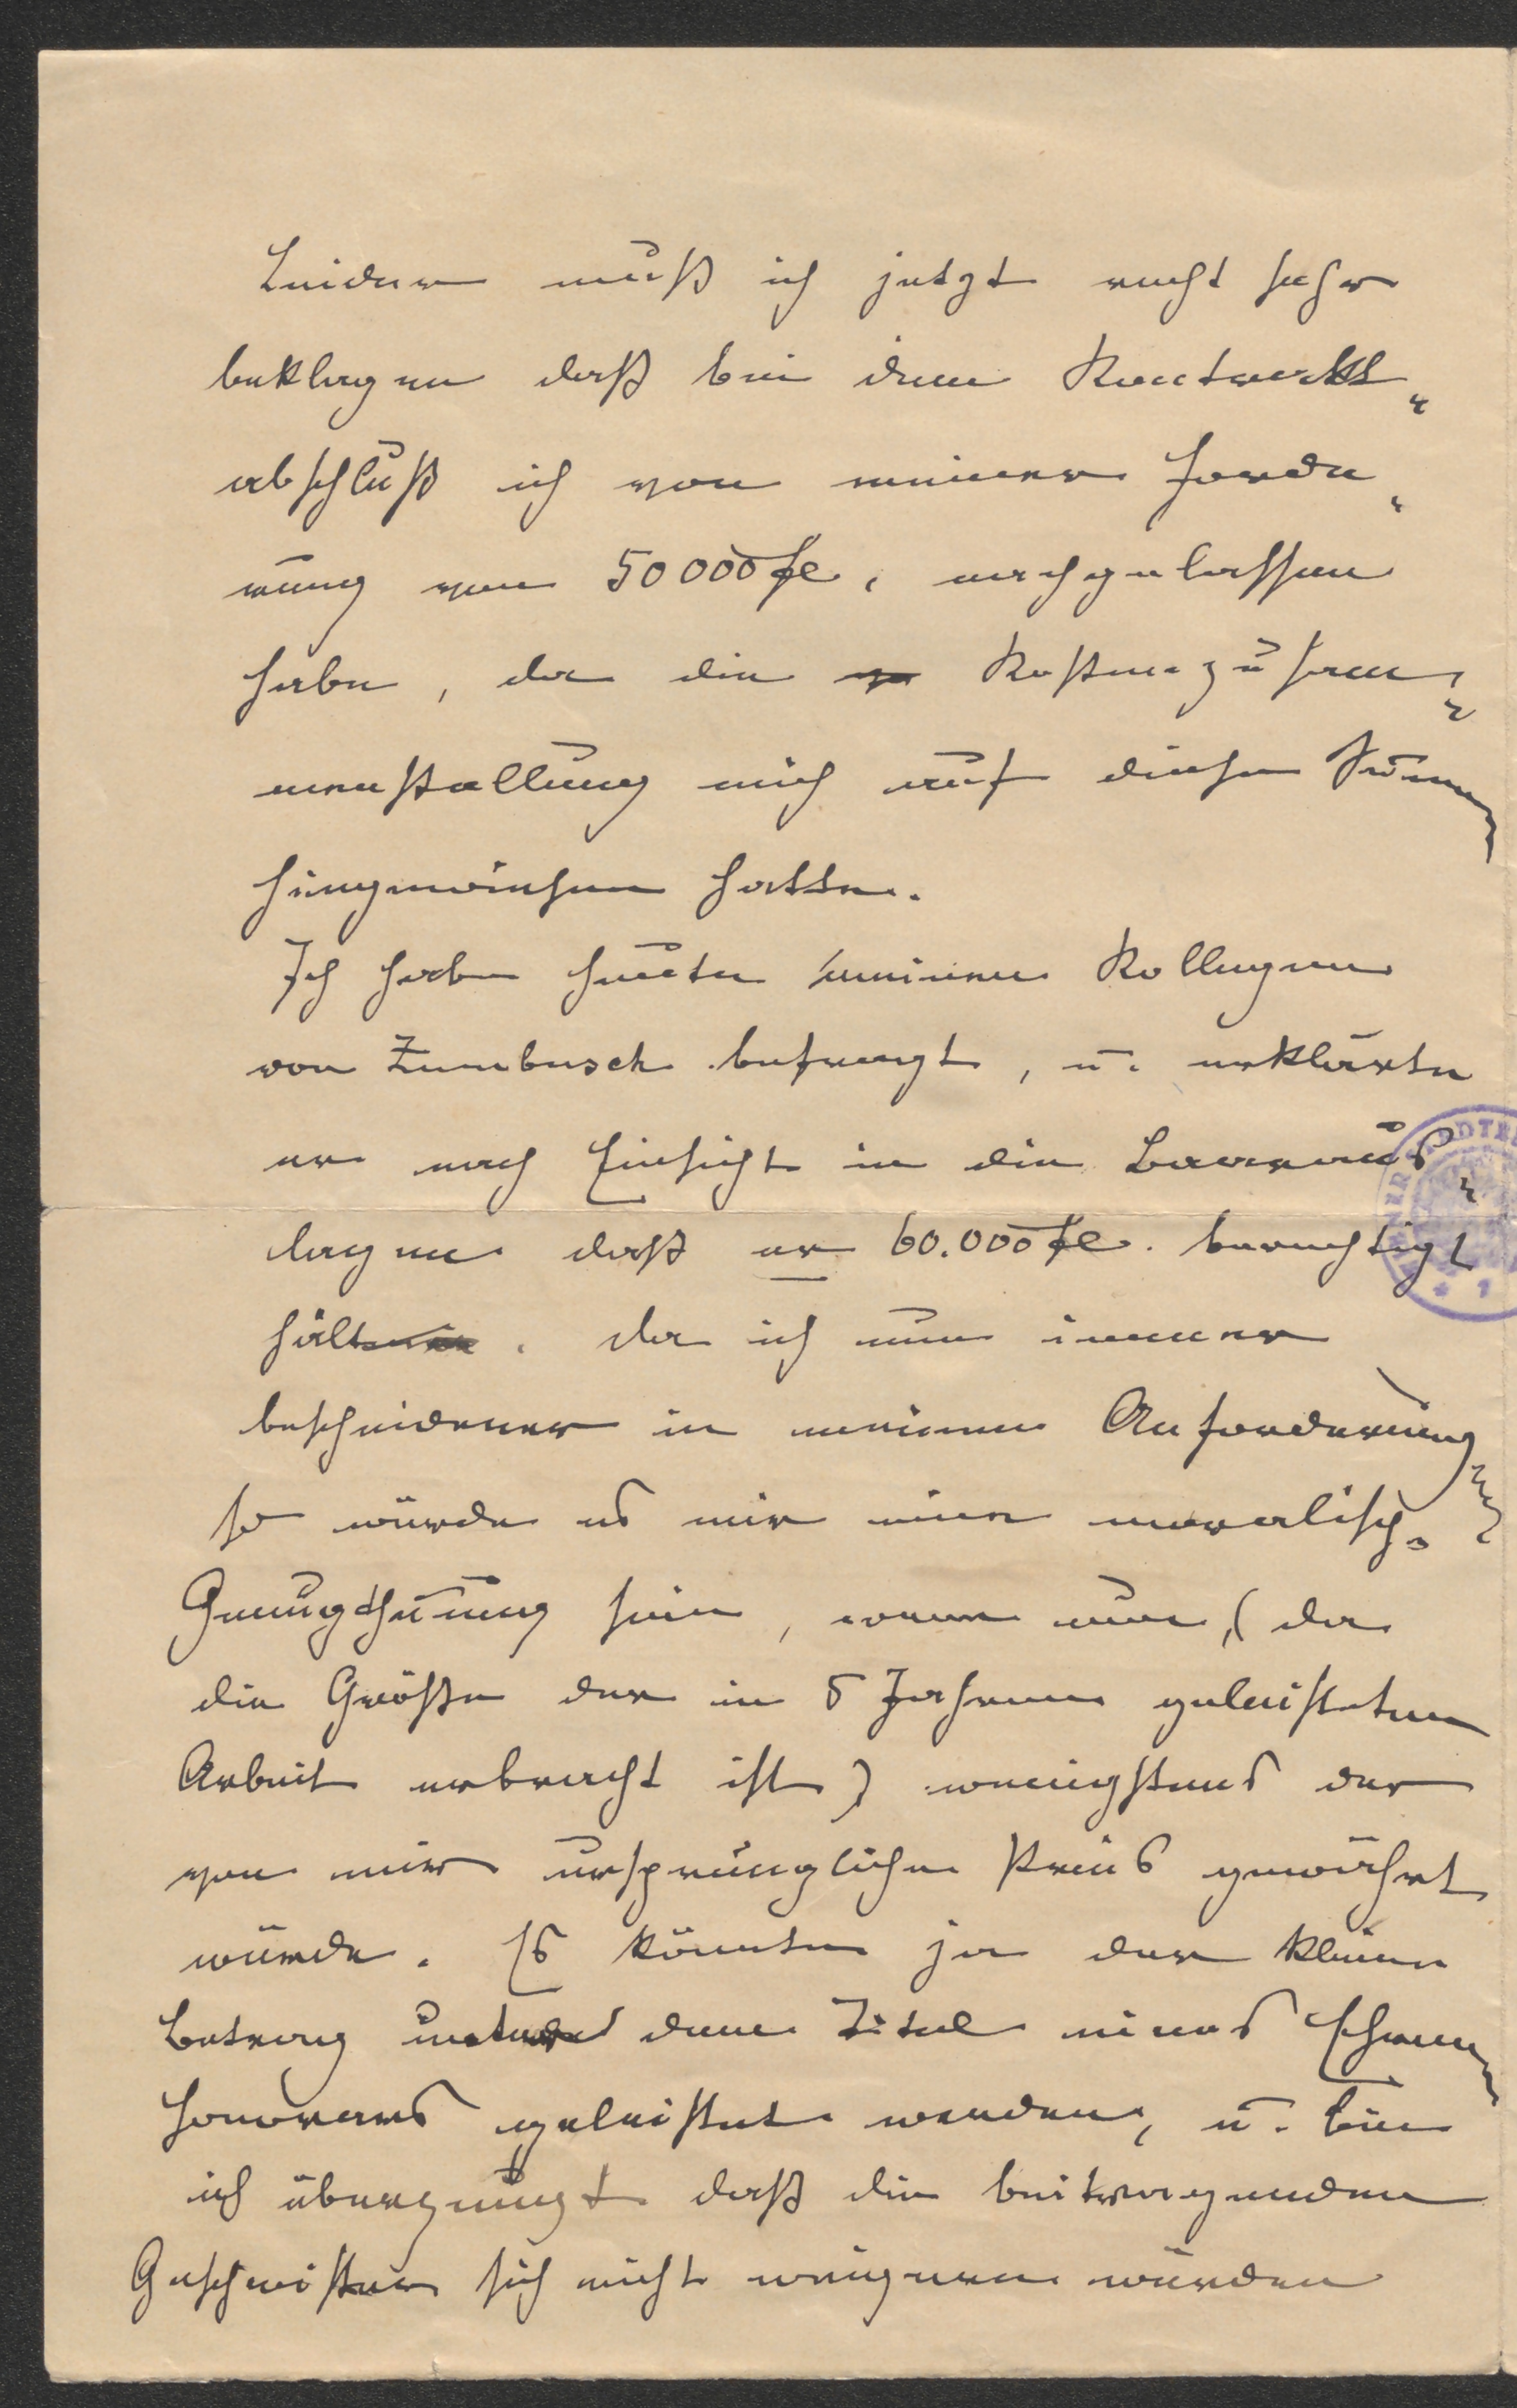 Leider muß ich jetzt recht sehr
beklagen daß bei dem Kontrakt„
abschluß ich von meiner Forde„
rung von 50000 fl, nachgelassen
habe, da die Kostenzusam„
menstellung mich auf diese Summe
hingewiesen hatte.
Ich habe heute meinen Kollegen
von Zumbusch befragt, u. erklärte
er nach Einsicht in die Baaraus„
lagen daß er 60.000 fl. berechtigt
hält. da ich nun immer
bescheidener in meinen Anforderung
so würde es mir eine moralisch.
Genugthuung sein, wenn nun, (da
die Größe der in 5 Jahren geleisteten
Arbeit erbracht ist) wenigstens der
von mir ursprüngliche Preis gewährt
würde. Es könnte ja der kleine
Betrag unter dem Titel eines Ehren
honorares geleistet werden, u. bin
ich überzeugt daß die beitragenden
Geschwister sich nicht weigern würden